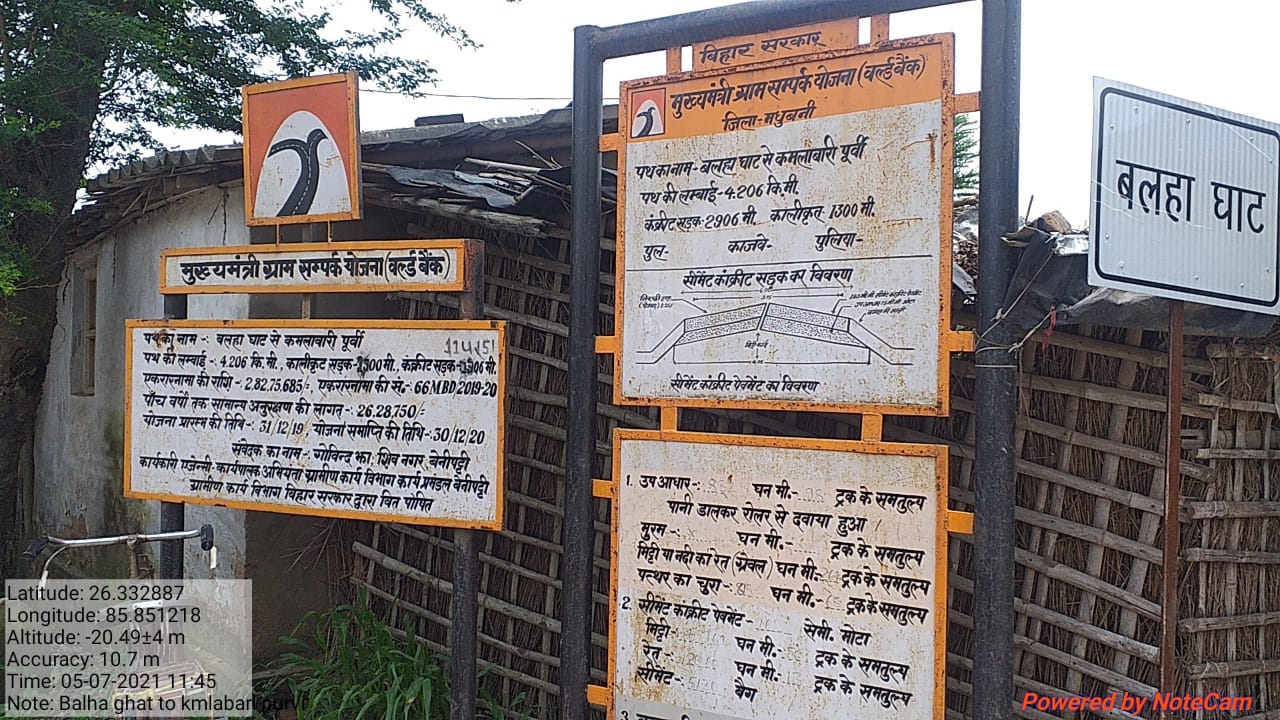 मुख्यमंत्री ग्राम सम्पर्क योजना (वर्ल्ड बैंक)
पथ का नाम -: बलहा घाट से कमलाबारी पूर्वी
पथ की लम्बाई -: 4.206 कि.मी., कालीकृत सड़क- 300 मी. कंक्रीट सड़क- 906 मी.
एकरारनामा की राशि -: 2,82,75,685/-, एकरारनामा की सं.- 66MBD2019-20
पाँच वर्षों तक सामान्य अनुरक्षण की लागत -: 26,28,750/=
योजना प्रारम्भ की तिथि -: 31/12/19 योजना समाप्ति की तिथि -: 30/12/20
संवेदक का नाम -: गोविन्द झा, शिव नगर, बेनीपट्टी
कार्यकारी एजेन्सी- कार्यपालक अभियंता ग्रामीण कार्य विभाग कार्य प्रमंडल बेनीपट्टी
ग्रामीण कार्य विभाग बिहार सरकार द्वारा वित पोषित
बिहार सरकार
मुख्यमंत्री ग्राम सम्पर्क योजना (वर्ल्ड बैंक)
जिला-मधुबनी
पथ का नाम- बलहा घाट से कमलाबारी पूर्वी
पथ की लम्बाई- 4.206 कि.मी.
कंक्रीट सड़क- 2906 मी. कालीकृत 1300 मी.
पुल- काजवे- पुलिया-
सीमेंट कांक्रीट सड़क का विवरण
सीमेंट कांक्रीट पेवमेंट का विवरण
1. उप आधार -: घन मी.- ट्रक के समतुल्य
पानी डालकर रोलर से दवाया हुआ
मुरम - घन मी.- ट्रक के समतुल्य
मिट्टी या नदी का रेत (ग्रेवल) घन मी. ट्रक के समतुल्य
पत्थर का चुरा- घन मी. ट्रक के समतुल्य
2. सीमेंट कांक्रीट पेवमेंट- सेमी. मोटा
मिट्टी- घन मी.- ट्रक के समतुल्य
रेत घन मी. ट्रक के समतुल्य
सीमेंट- बैग
3.
बलहा घाट
Latitude: 26.332887
Longitude: 85.851218
Altitude: -20.49±4 m
Accuracy: 10.7 m
Time: 05-07-2021 11:45
Note: Balha ghat to kmlabari purvi
Powered by NoteCam